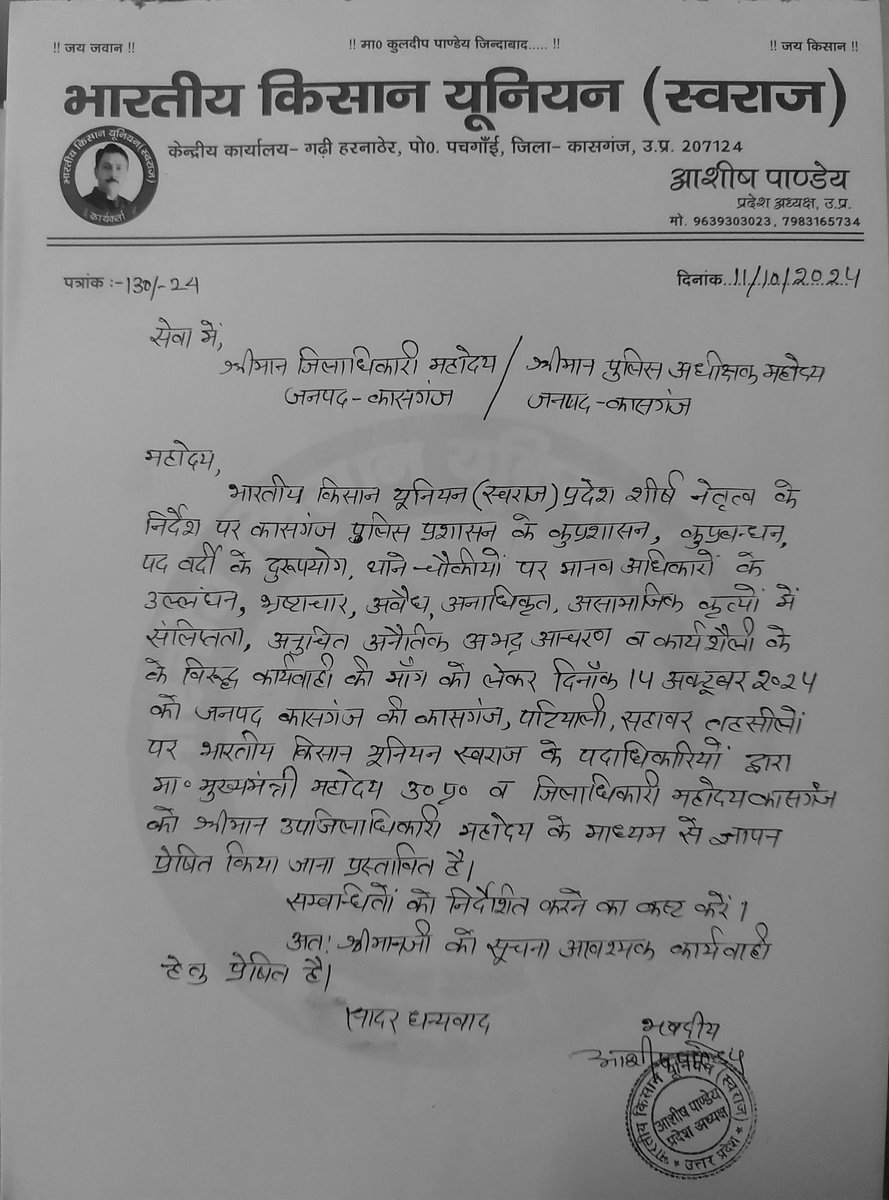 !! जय जवान !! !! मा0 कुलदीप पाण्डेय जिन्दाबाद..... !! !! जय किसान !!
भारतीय किसान यूनियन (स्वराज)
केन्द्रीय कार्यालय- गढ़ी हरनाठेर, पो0. पचगाँई, जिला- कासगंज, उ.प्र. 207124
भारतीय किसान यूनियन (स्वराज)
कार्यकर्ता
आशीष पाण्डेय
प्रदेश अध्यक्ष, उ.प्र.
मो. 9639303023, 7983165734
पत्रांक :-130/-24 दिनांक..11/10/2024
सेवा में,
श्रीमान जिलाधिकारी महोदय / श्रीमान पुलिस अधीक्षक महोदय
जनपद-कासगंज / जनपद-कासगंज
महोदय,
भारतीय किसान यूनियन (स्वराज) प्रदेश शीर्ष नेतृत्व के
निर्देश पर कासगंज पुलिस प्रशासन के कुप्रशासन, कुप्रबन्धन,
पद वर्दी के दुरूपयोग, थाने-चौकीयों पर मानव अधिकारों के
उल्लंघन, भ्रष्टाचार, अवैध, अनाधिकृत, असामाजिक कृत्यों में
संलिप्तता, अनुचित अनैतिक अभद्र आचरण व कार्यशैली के
के विरूद्ध कार्यवाही की माँग को लेकर दिनाँक 14 अक्टूबर 2024
को जनपद कासगंज की कासगंज, पटियाली, सहावर तहसीलों
पर भारतीय किसान यूनियन स्वराज के पदाधिकारियों द्वारा
मा॰ मुख्यमंत्री महोदय उ॰प्र॰ व जिलाधिकारी महोदय कासगंज
को श्रीमान उपजिलाधिकारी महोदय के माध्यम से ज्ञापन
प्रेषित किया जाना प्रस्तावित है।
सम्बन्धितों को निर्देशित करने का कष्ट करें।
अतः श्रीमानजी को सूचना आवश्यक कार्यवाही
हेतु प्रेषित है।
सादर धन्यवाद
भवदीय
आशीष पाण्डेय
भारतीय किसान यूनियन (स्वराज)
आशीष पाण्डेय
प्रदेश अध्यक्ष
* उत्तर प्रदेश *